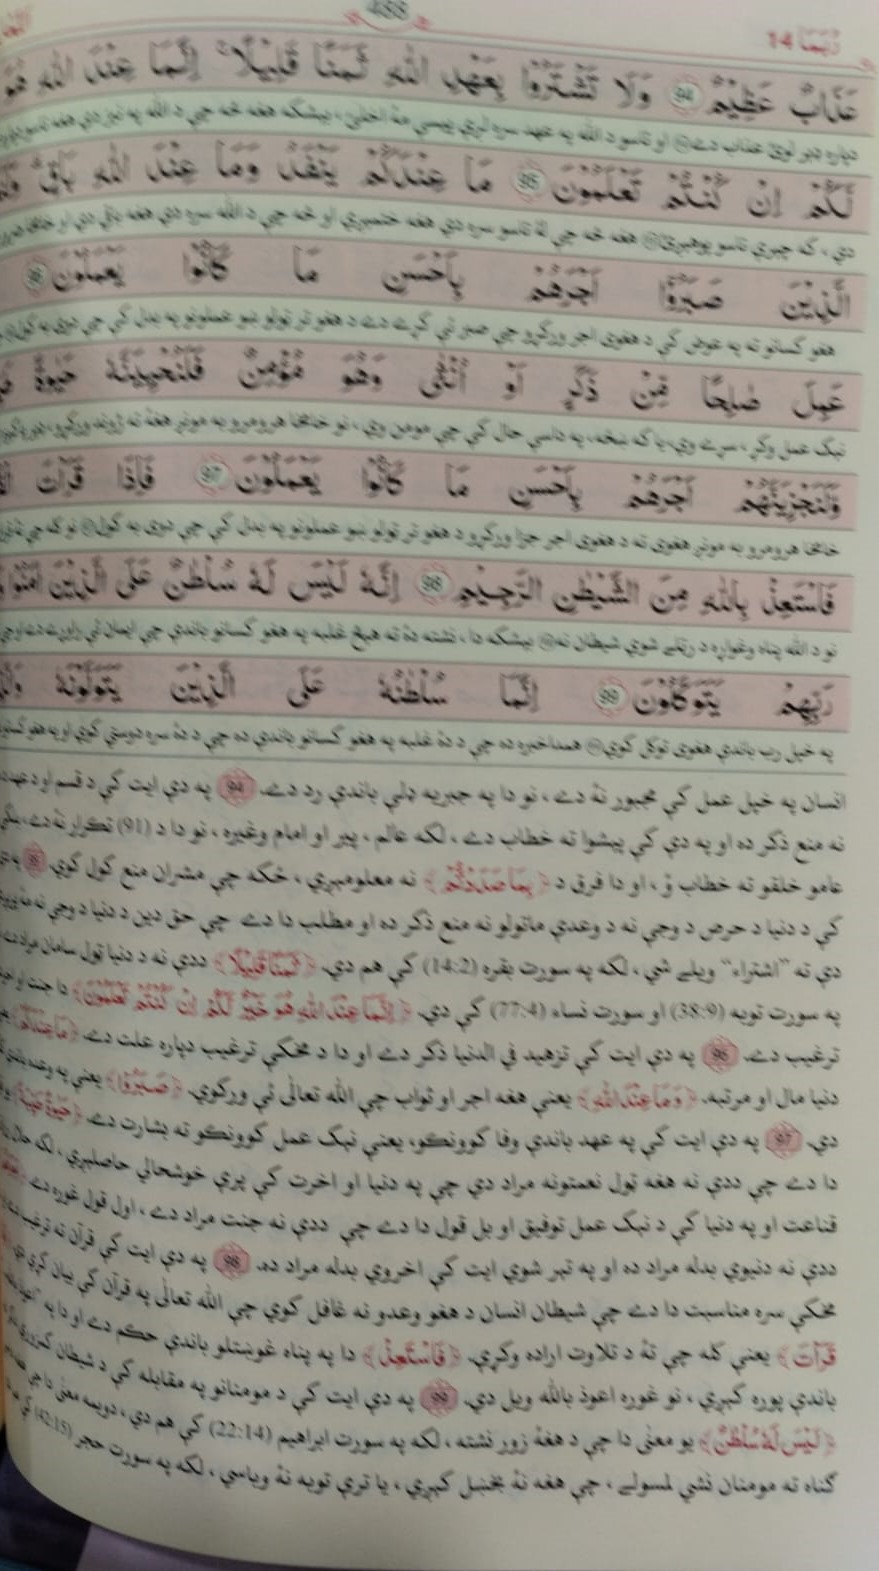 رُبَمَا 14
488
عَذَابٌ عَظِيْمٌ 94 وَلَا تَشْتَرُوْا بِعَهْدِ اللّٰهِ ثَمَنًا قَلِيْلًا ؕ اِنَّمَا عِنْدَ اللّٰهِ هُوَ
دپاره ډېر لوئ عذاب دے او تاسو د الله په عهد سره لږې پيسې مۀ اخلئ، بيشکه هغه څه چې د الله په نيز دي هغه
لَّكُمْ اِنْ كُنْتُمْ تَعْلَمُوْنَ 95 مَا عِنْدَكُمْ يَنْفَدُ وَمَا عِنْدَ اللّٰهِ بَاقٍ ؕ
دي، که چېرې تاسو پوهېږئ هغه څه چې لۀ تاسو سره دي هغه ختمېږي او څه چې د الله سره دي هغه باقي دي او
الَّذِيْنَ صَبَرُوْۤا اَجْرَهُمْ بِاَحْسَنِ مَا كَانُوْا يَعْمَلُوْنَ 96
هغو کسانو ته په عوض کې د هغوی اجر ورکړو چې صبر ئې کړے دے د هغو تر ټولو ښو عملونو په بدل کې چې دوی به کول
عَمِلَ صٰلِحًا مِّنْ ذَكَرٍ اَوْ اُنْثٰى وَهُوَ مُؤْمِنٌ فَلَنُحْيِيَنَّهٗ حَيٰوةً
نېک عمل وکړ، سړے وي، يا که ښځه، په داسې حال کې چې مومن وي، نو خامخا هرومرو به مونږ هغۀ ته ژوند ورکړو،
وَلَنَجْزِيَنَّهُمْ اَجْرَهُمْ بِاَحْسَنِ مَا كَانُوْا يَعْمَلُوْنَ 97 فَاِذَا قَرَاْتَ
خامخا هرومرو به مونږ هغوی ته د هغوی اجر جزا ورکړو د هغو تر ټولو ښو عملونو په بدل کې چې دوی به کول نو کله چې
فَاسْتَعِذْ بِاللّٰهِ مِنَ الشَّيْطٰنِ الرَّجِيْمِ 98 اِنَّهٗ لَيْسَ لَهٗ سُلْطٰنٌ عَلَى الَّذِيْنَ اٰمَنُوْا
نو د الله پناه وغواړه د رټلے شوي شيطان نه بيشکه دا، نشته دۀ ته هيڅ غلبه په هغو کسانو باندې چې ايمان ئې راوړے دے
رَبِّهِمْ يَتَوَكَّلُوْنَ 99 اِنَّمَا سُلْطٰنُهٗ عَلَى الَّذِيْنَ يَتَوَلَّوْنَهٗ
په خپل رب باندې هغوی توکل کوي همدا خبره ده چې د دۀ غلبه په هغو کسانو باندې ده چې د دۀ سره دوستي کوي او په هغو
انسان په خپل عمل کې مجبور نۀ دے، نو دا په جبريه ډلې باندې رد دے. 94 په دې ايت کې د قسم او د عهد
نه منع ذکر ده او په دې کې پيشوا ته خطاب دے، لکه عالم، پير او امام وغيره، نو دا د (91) تکرار نۀ دے،
عامو خلقو ته خطاب ؤ، او دا فرق د ﴿بِمَا صَدَدْتُّمْ﴾ نه معلومېږي، ځکه چې مشران منع کول کوي. 95
کې د دنيا د حرص د وجې نه د وعدې ماتولو نه منع ذکر ده او مطلب دا دے چې حق دين د دنيا د وجې نه مۀ
دې ته "اشتراء" ويلے شي، لکه په سورت بقره (14:2) کې هم دي. ﴿ثَمَنًا قَلِيْلًا﴾ ددې نه د دنيا ټول سامان مراد دے
په سورت توبه (38:9) او سورت نساء (77:4) کې دي. ﴿اِنَّمَا عِنْدَ اللّٰهِ هُوَ خَيْرٌ لَّكُمْ اِنْ كُنْتُمْ تَعْلَمُوْنَ﴾ دا جنت
ترغيب دے. 96 په دې ايت کې تزهيد في الدنيا ذکر دے او دا د مخکې ترغيب دپاره علت دے. ﴿مَا عِنْدَكُمْ﴾
دنيا مال او مرتبه. ﴿وَمَا عِنْدَ اللّٰهِ﴾ يعنې هغه اجر او ثواب چې الله تعالٰی ئې ورکوي. ﴿صَبَرُوْۤا﴾ يعنې په وعده
دي. 97 په دې ايت کې په عهد باندې وفا کوونکو، يعنې نېک عمل کوونکو ته بشارت دے. ﴿حَيٰوةً طَيِّبَةً﴾
دا دے چې ددې نه هغه ټول نعمتونه مراد دي چې په دنيا او اخرت کې پرې خوشحالي حاصلېږي، لکه حلال
قناعت او په دنيا کې د نېک عمل توفيق او بل قول دا دے چې ددې نه جنت مراد دے، اول قول غوره دے.
ددې نه دنيوي بدله مراد ده او په تېر شوي ايت کې اخروي بدله مراد ده. 98 په دې ايت کې قرآن ته ترغيب
مخکې سره مناسبت دا دے چې شيطان انسان د هغو وعدو نه غافل کوي چې الله تعالٰی په قرآن کې بيان کړې دي.
قَرَاْتَ﴾ يعنې کله چې تۀ د تلاوت اراده وکړې. ﴿فَاسْتَعِذْ﴾ دا په پناه غوښتلو باندې حکم دے او دا په
باندې پوره کېږي، نو غوره اعوذ بالله ويل دي. 99 په دې ايت کې د مومنانو په مقابله کې د شيطان کمزوري
﴿لَيْسَ لَهٗ سُلْطٰنٌ﴾ يو معنٰی دا چې د هغۀ زور نشته، لکه په سورت ابراهيم (22:14) کې هم دي، دويمه معنٰی دا چې
ګناه ته مومنان نشي لمسولے، چې هغه نۀ بخښل کېږي، يا ترې توبه نۀ وباسي، لکه په سورت حجر (42:15) کې